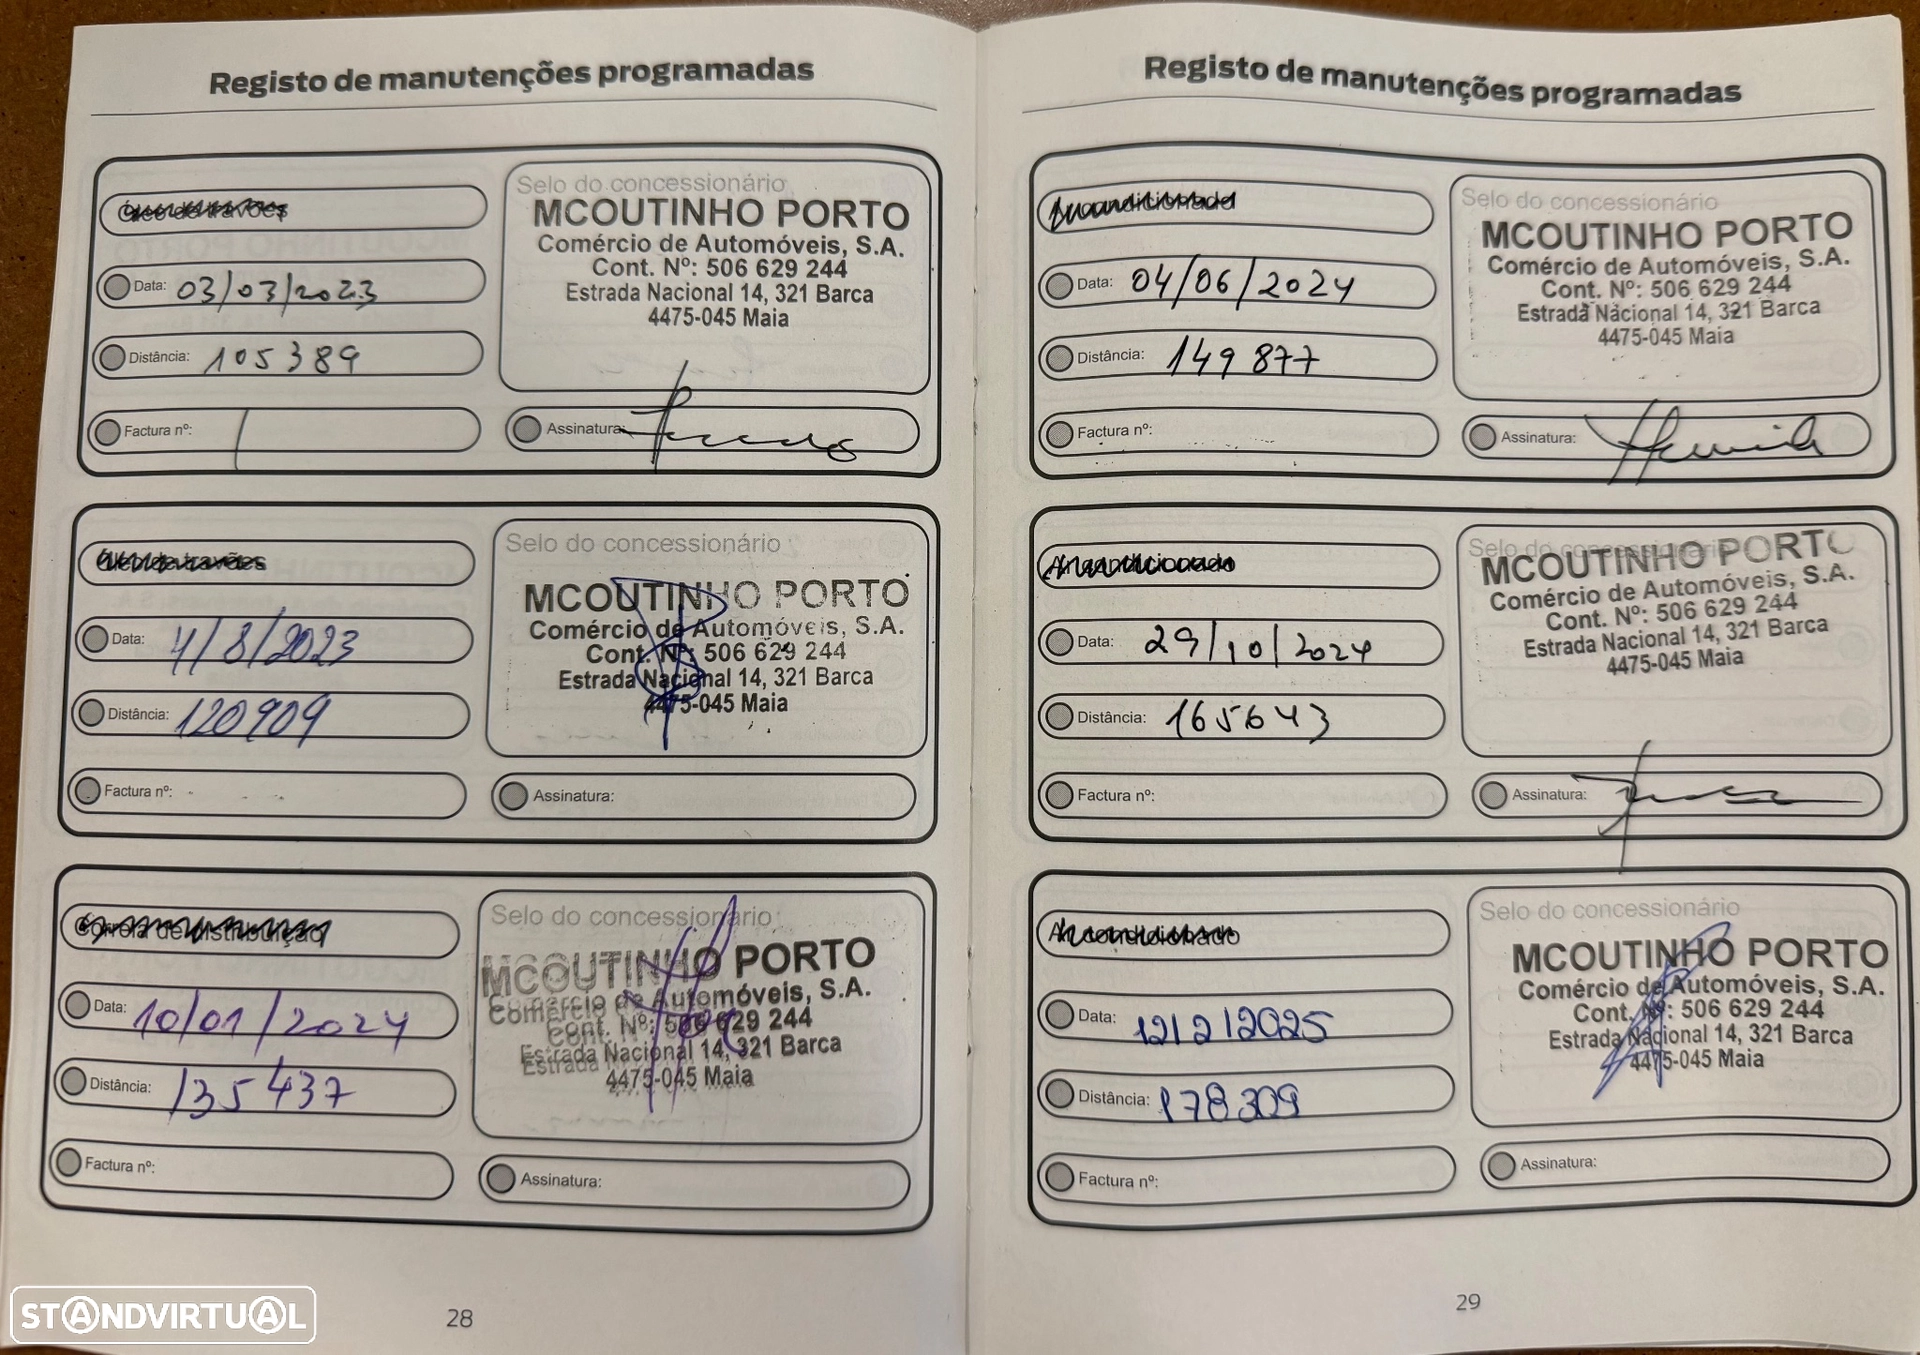 Registo de manutenções programadas
Óleo de travões
Data: 03/03/2023
Distância: 105389
Factura nº: /
Selo do concessionário
MCOUTINHO PORTO
Comércio de Automóveis, S.A.
Cont. Nº: 506 629 244
Estrada Nacional 14, 321 Barca
4475-045 Maia
Assinatura:
Óleo de travões
Data: 4/8/2023
Distância: 120909
Factura nº:
Selo do concessionário
MCOUTINHO PORTO
Comércio de Automóveis, S.A.
Cont. Nº: 506 629 244
Estrada Nacional 14, 321 Barca
4475-045 Maia
Assinatura:
Correia de distribuição
Data: 10/01/2024
Distância: 135437
Factura nº:
Selo do concessionário
MCOUTINHO PORTO
Comércio de Automóveis, S.A.
Cont. Nº: 506 629 244
Estrada Nacional 14, 321 Barca
4475-045 Maia
Assinatura:
28
Registo de manutenções programadas
Ar condicionado
Data: 04/06/2024
Distância: 149877
Factura nº:
Selo do concessionário
MCOUTINHO PORTO
Comércio de Automóveis, S.A.
Cont. Nº: 506 629 244
Estrada Nacional 14, 321 Barca
4475-045 Maia
Assinatura:
Ar condicionado
Data: 29/10/2024
Distância: 165643
Factura nº:
Selo do concessionário
MCOUTINHO PORTO
Comércio de Automóveis, S.A.
Cont. Nº: 506 629 244
Estrada Nacional 14, 321 Barca
4475-045 Maia
Assinatura:
Ar condicionado
Data: 12/2/2025
Distância: 178309
Factura nº:
Selo do concessionário
MCOUTINHO PORTO
Comércio de Automóveis, S.A.
Cont. Nº: 506 629 244
Estrada Nacional 14, 321 Barca
4475-045 Maia
Assinatura:
29
STANDVIRTUAL